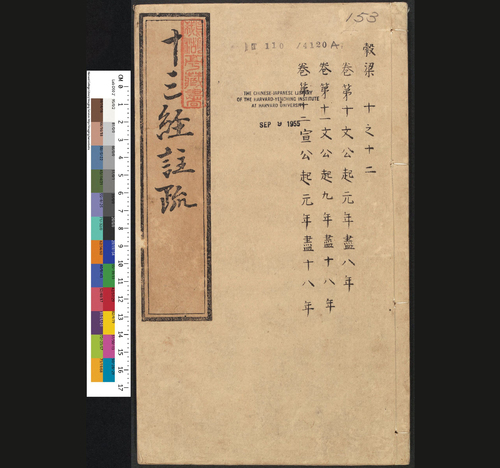 153
穀梁 十之十二
卷第十文公起元年盡八年
卷第十一文公起九年盡十八年
卷第十二宣公起元年盡十八年
THE CHINESE-JAPANESE LIBRARY
OF THE HARVARD-YENCHING INSTITUTE
AT HARVARD UNIVERSITY
SEP 9 1955
十三經註疏
CM 0
1
2
3
4
5
6
7
8
9
10
11
12
13
14
15
16
17